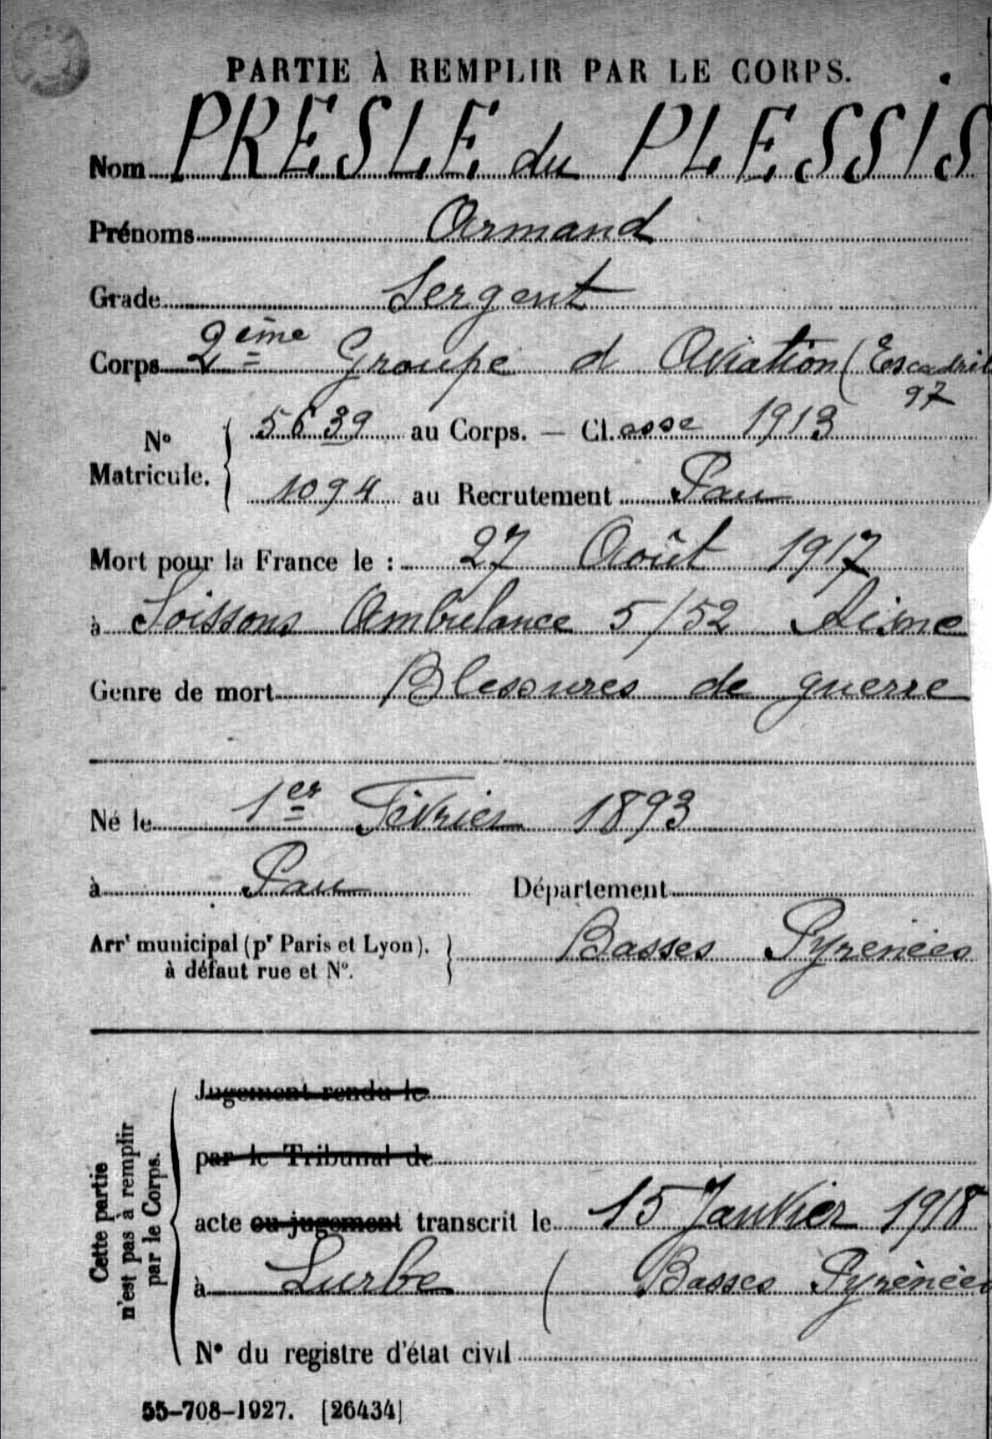 PARTIE À REMPLIR PAR LE CORPS.
Nom PRESLE du PLESSIS
Prénoms Armand
Grade Sergent
Corps 2ème Groupe d Aviation (Escadril
97
5639 au Corps. — Cl.asse 1913
N° Matricule.
1094 au Recrutement Pau
Mort pour la France le : 27 Août 1917
à Soissons Ambulance 5/52 Aisne
Genre de mort Blessures de guerre
Né le 1er Février 1893
à Pau Département
Arrt municipal (pr Paris et Lyon), à défaut rue et N°. Basses Pyrenées
Cette partie n'est pas à remplir par le Corps.
Jugement rendu le
par le Tribunal de
acte ou jugement transcrit le 15 Janvier 1918
à Lurbe (Basses Pyrénées
N° du registre d'état civil
55-708-1927. [26434]